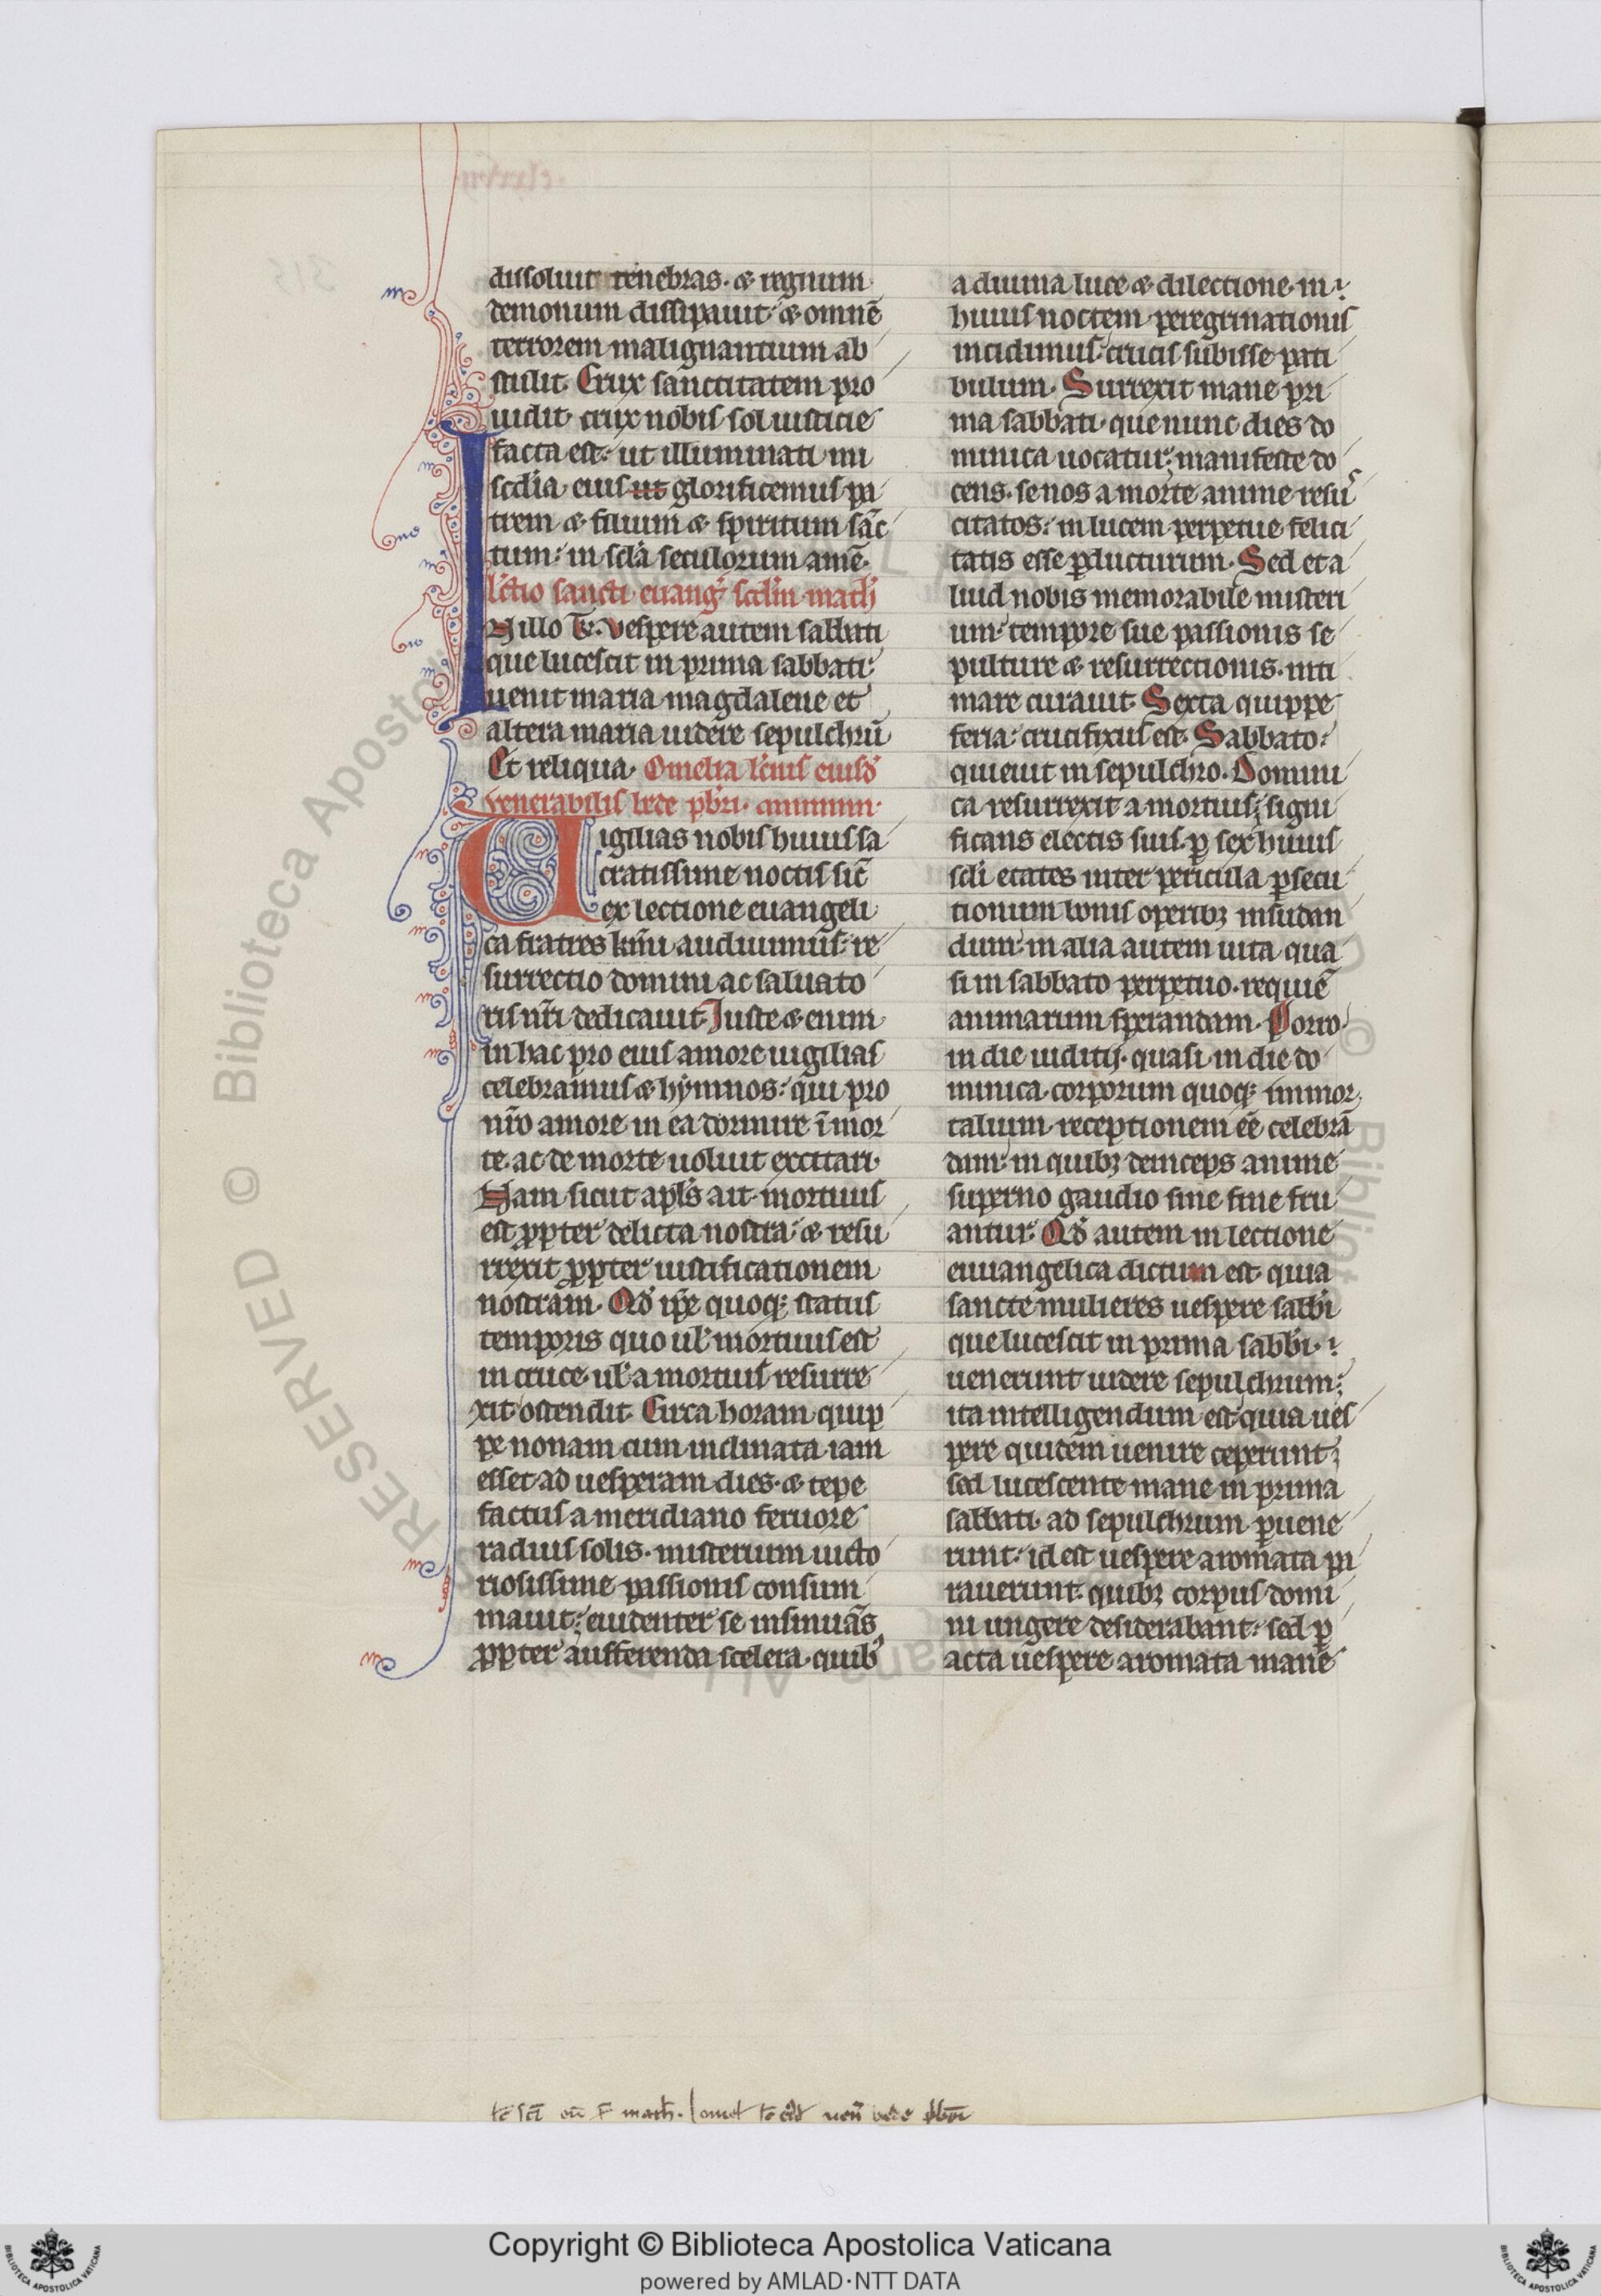 dissoluit tenebras. & regnum
demonum dissipauit: & omnē
terrorem malignantium ab
stulit. Crux sanctitatem pro
uidit. crux nobis sol iusticie
facta est: ut illuminati mi
scďia eius ut glorificemus pa
trem & filium & spiritum sāc
tum: in scľa seculorum amē.
lctio sancti euangͥ. scďm math
In illo t̄. Vespere autem sabbati
que lucescit in prima sabbati:
uenit maria magdalene et
altera maria uidere sepulchrū
Et reliqua. Omelia
venerabilis bede pbri.
Vigilias nobis huius sa
cratissime noctis sic̄
ex lectione euangeli
ca fratres kmi audiuimus: re
surrectio domini ac saluato
ris nr̄i dedicauit. Iuste & enim
in hac pro eius amore uigilias
celebramus & hẏmnos: qui pro
nr̄o amore in ea dormire ī mor
te. ac de morte uoluit excitari.
Nam sicut apľs ait. mortuus
est ꝓpter delicta nostra: & resu
rrexit ꝓpter iustificationem
nostram. Qđ ip̄e quoqꝫ status
temporis quo uľ mortuus est
in cruce. uľ a mortuis resurre
xit ostendit. Circa horam quip
pe nonam cum inclinata iam
esset ad uesperam dies. & tepe
factus a meridiano feruore
radius solis. misterium uicto
riosissime passionis consum
mauit: euidenter se insinuās
ꝓpter aufferenda scelera. quibꝰ
a diuina luce & dilectione in
huius noctem peregrinationis
incidimus. crucis subisse pati
bulum. Surrexit mane pri
ma sabbati. que nunc dies do
minica uocatur: manifeste do
cens. se nos a morte anime resuˢ
citatos: in lucem perpetue felici
tatis esse ꝑducturum. Sed et a
liud nobis memorabile misteri
um: tempore sue passionis se
pulture & resurrectionis. inti
mare curauit. Sexta quippe
feria: crucifixus est. Sabbato:
quieuit in sepulchro. Domini
ca resurrexit a mortuis: signi
ficans electis suis. ꝑ sex huius
scľi etates inter pericula ꝑsecu
tionum bonis operibꝫ insudan
dum: in alia autem uita qua
si in sabbato perpetuo. requiē
animarum sperandam. Porro.
in die iuditij. quasi in die do
minica. corporum quoqꝫ immor
talium. receptionem eē celebrā
dam: in quibꝫ deinceps anime
superno gaudio sine fine fru
antur. Qđ autem in lectione
euuangelica dictum est. quia
sancte mulieres uespere sabb̄i
que lucescit in prima sabb̄i.
uenerunt uidere sepulchrum:
ita intelligendum est. quia ues
pere quidem uenire ceperunt:
sed lucescente mane in prima
sabbati. ad sepulchrum ꝑuene
runt: id est uespere aromata pa
rauerunt. quibꝫ corpus domi
ni ungere desiderabant: sed ꝑ
acta uespere aromata mane
Copyright © Biblioteca Apostolica Vaticana
powered by AMLAD·NTT DATA